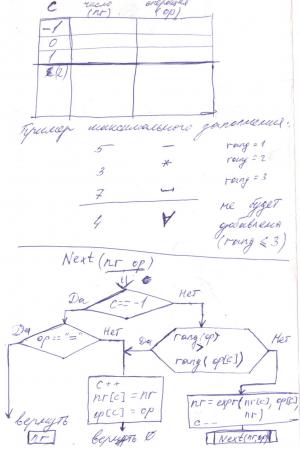 c число операция
(nr) (op)
-1
0
1
(2)
Пример максимального заполнения:
5 - rang = 1
3 * rang = 2
7 rang = 3
4 не будет
добавлена
(rang ≤ 3)
Next(nr op)
c == -1
Да Нет
op == "="
rang(op)
>
rang(op[c])
Да Нет Да Нет
c++
nr[c] = nr
op[c] = op
nr = expr(nr[c], op[c],
nr)
c--
вернуть
nr
вернуть
Next(nr op)